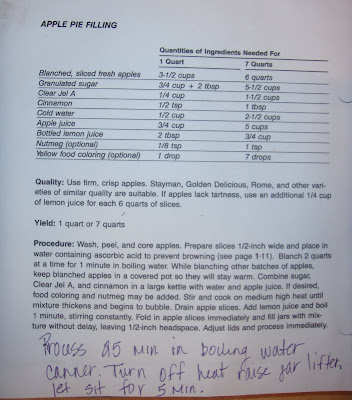 APPLE PIE FILLING
Quantities of Ingredients Needed For
1 Quart 7 Quarts
Blanched, sliced fresh apples 3-1/2 cups 6 quarts
Granulated sugar 3/4 cup + 2 tbsp 5-1/2 cups
Clear Jel A 1/4 cup 1-1/2 cups
Cinnamon 1/2 tsp 1 tbsp
Cold water 1/2 cup 2-1/2 cups
Apple juice 3/4 cup 5 cups
Bottled lemon juice 2 tbsp 3/4 cup
Nutmeg (optional) 1/8 tsp 1 tsp
Yellow food coloring (optional) 1 drop 7 drops
Quality: Use firm, crisp apples. Stayman, Golden Delicious, Rome, and other vari-
eties of similar quality are suitable. If apples lack tartness, use an additional 1/4 cup
of lemon juice for each 6 quarts of slices.
Yield: 1 quart or 7 quarts
Procedure: Wash, peel, and core apples. Prepare slices 1/2-inch wide and place in
water containing ascorbic acid to prevent browning (see page 1-11). Blanch 2 quarts
at a time for 1 minute in boiling water. While blanching other batches of apples,
keep blanched apples in a covered pot so they will stay warm. Combine sugar,
Clear Jel A, and cinnamon in a large kettle with water and apple juice. If desired,
food coloring and nutmeg may be added. Stir and cook on medium high heat until
mixture thickens and begins to bubble. Drain apple slices. Add lemon juice and boil
1 minute, stirring constantly. Fold in apple slices immediately and fill jars with mix-
ture without delay, leaving 1/2-inch headspace. Adjust lids and process immediately.
Process 25 min in boiling water
canner. Turn off heat raise jar lifter,
let sit for 5 min.